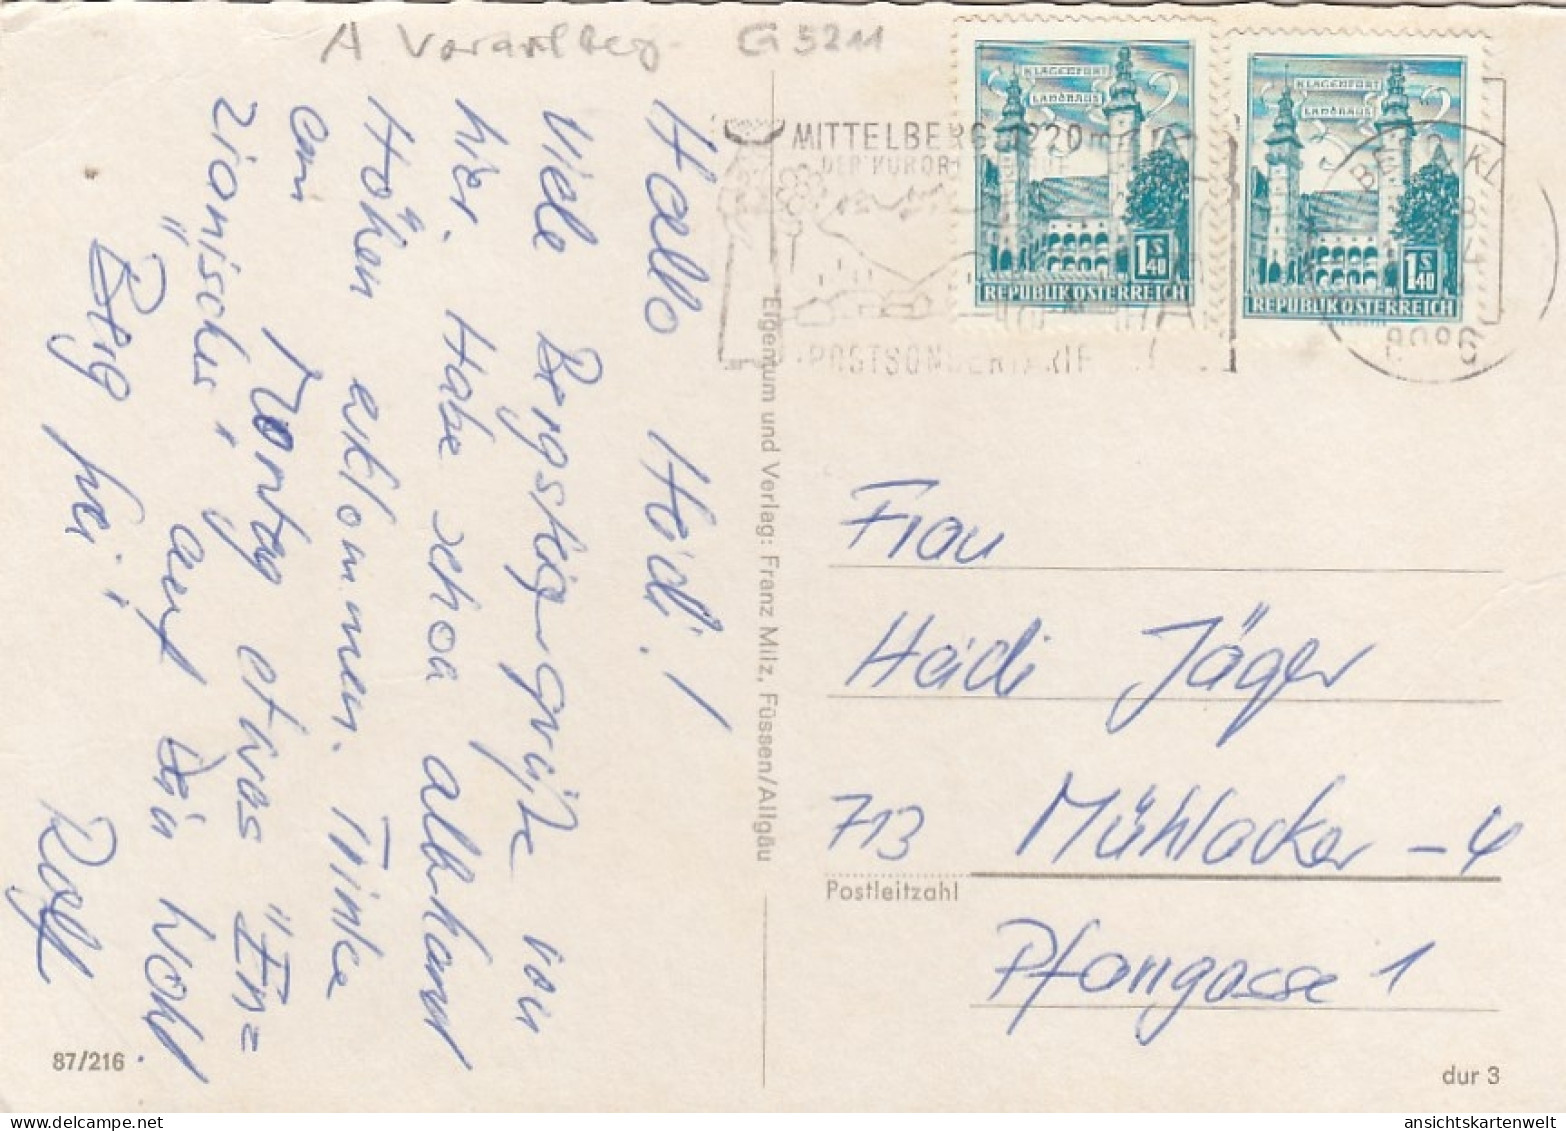 A Vorarlberg G 5211
MITTELBERG 1220m
DER KURORT
POSTSONDERTARIF
KLAGENFURT
LANDHAUS
1S40
REPUBLIK ÖSTERREICH
KLAGENFURT
LANDHAUS
1S40
REPUBLIK ÖSTERREICH
Hallo Heidi!
Viele Bergsteigergrüße von
hier. Habe schon allerhand
Höhen erklommen. Trinke
am Montag etwas "Enz=
ianisches" auf Dein Wohl.
Berg frei!
Rolf
87/216
Eigentum und Verlag: Franz Milz, Füssen/Allgäu
Frau
Heidi Jäger
713 Mühlacker-4
Postleitzahl
Pfarrgasse 1
dur 3
ansichtskartenwelt